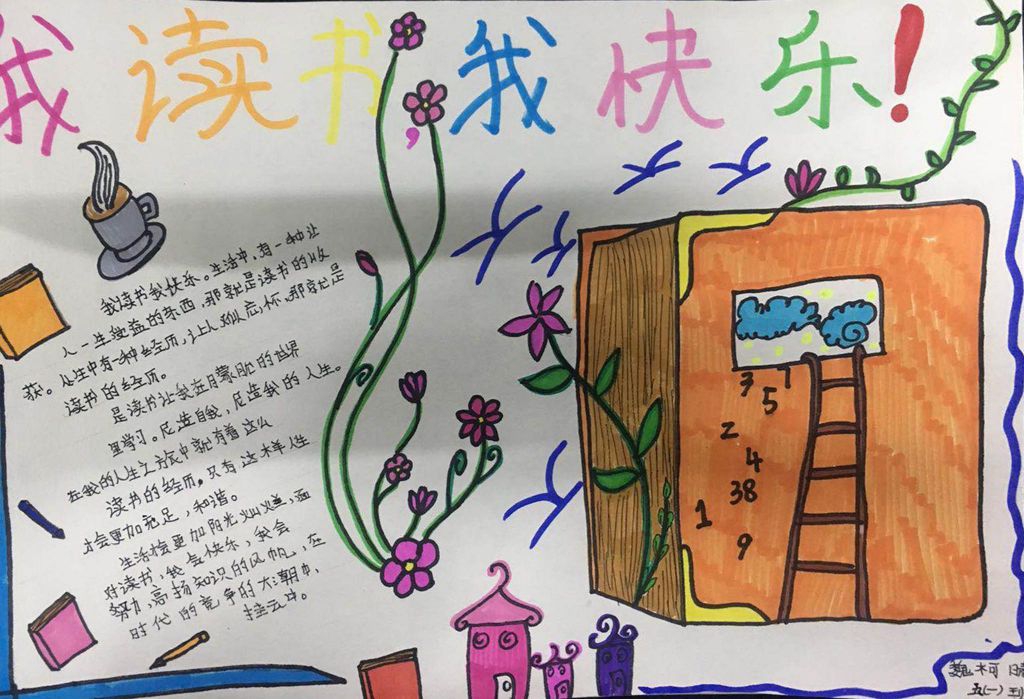 我读书,我快乐!
我读书我快乐。生活中,有一种让
人一生受益的东西,那就是读书的收
获。人生中有一种经历,让人难忘怀,那就是
读书的经历。
是读书让我在朦胧的世界
里学习。尼造自我,尼造我的人生。
在我的人生之旅中就有着这么
读书的经历。只有这样人生
才会更加充足,和谐。
生活会更加阳光灿烂,
对读书,我会快乐,我会
努力,高扬知识的风帆,在
时代的竞争的大潮中,
挂云中。
3
7
5
2
4
38
1
9
魏
五(一)